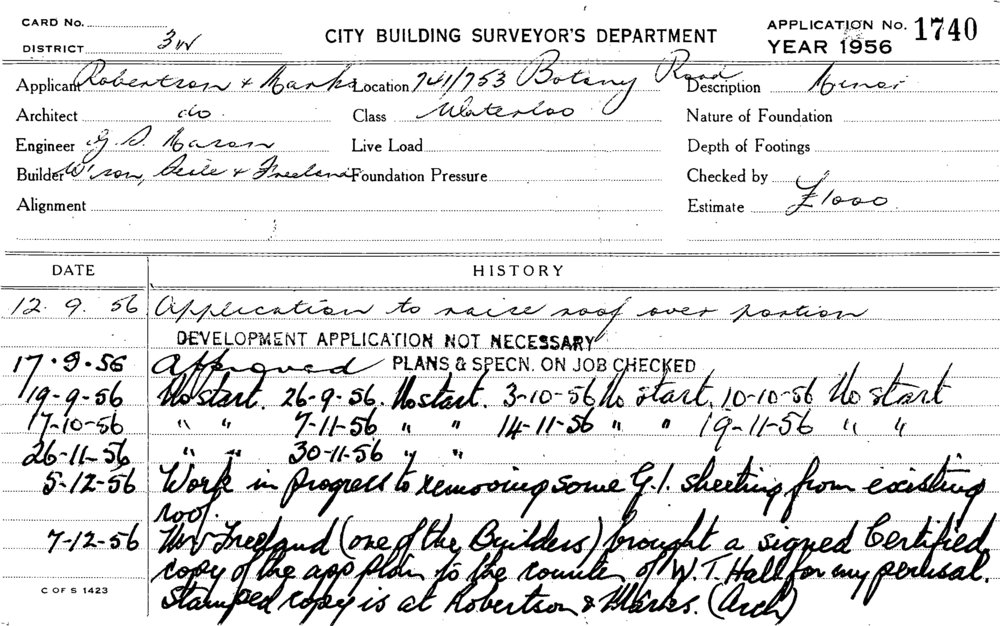 CARD No.
DISTRICT 3W
CITY BUILDING SURVEYOR'S DEPARTMENT
APPLICATION No. 1740
YEAR 1956
Applicant Robertson & Marks Location 741/753 Botany Road Description Minor
Architect do Class Waterloo Nature of Foundation
Engineer G. S. Mason Live Load Depth of Footings
Builder & Freeland Foundation Pressure Checked by
Alignment Estimate £1000
DATE HISTORY
12. 9. 56 Application to raise roof over portion
DEVELOPMENT APPLICATION NOT NECESSARY
17.9.56 Approved PLANS & SPECN. ON JOB CHECKED
19-9-56 No start. 26-9-56. No start. 3-10-56 No start. 10-10-56 No start
17-10-56 " " 7-11-56 " " 14-11-56 " " 19-11-56 " "
26-11-56 " " 30-11-56 " "
5-12-56 Work in progress to removing some G.I. sheeting from existing
roof.
7-12-56 Mr Freeland (one of the Builders) brought a signed Certified
copy of the app plan to the counter of W.T. Hall for my perusal.
Stamped copy is at Robertson & Marks. (Arch)
C OF S 1423